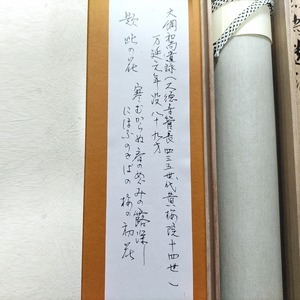 大綱和尚遺詠（大徳寺管長四三五世代黄梅院十四世）
万延元年没 八十九才
歎此の花 寒むからぬ春のめぐみの露深し
にほふのきばの梅の初花